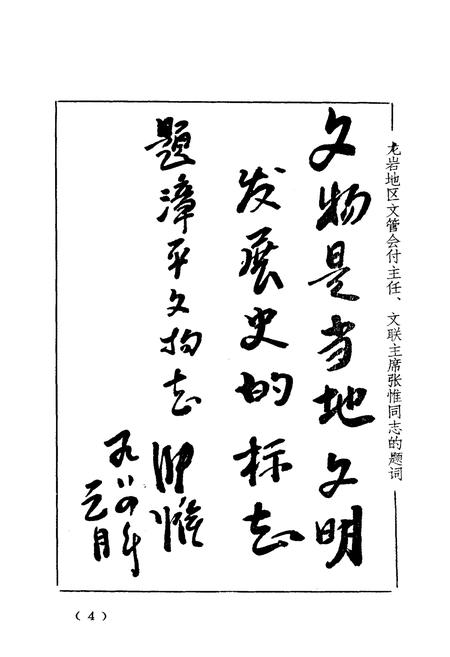 龙岩地区文管会付主任、文联主席张惟同志的题词
文物是当地文明
发展史的标志
题漳平文物志
张惟
九八四年
元月
（4）